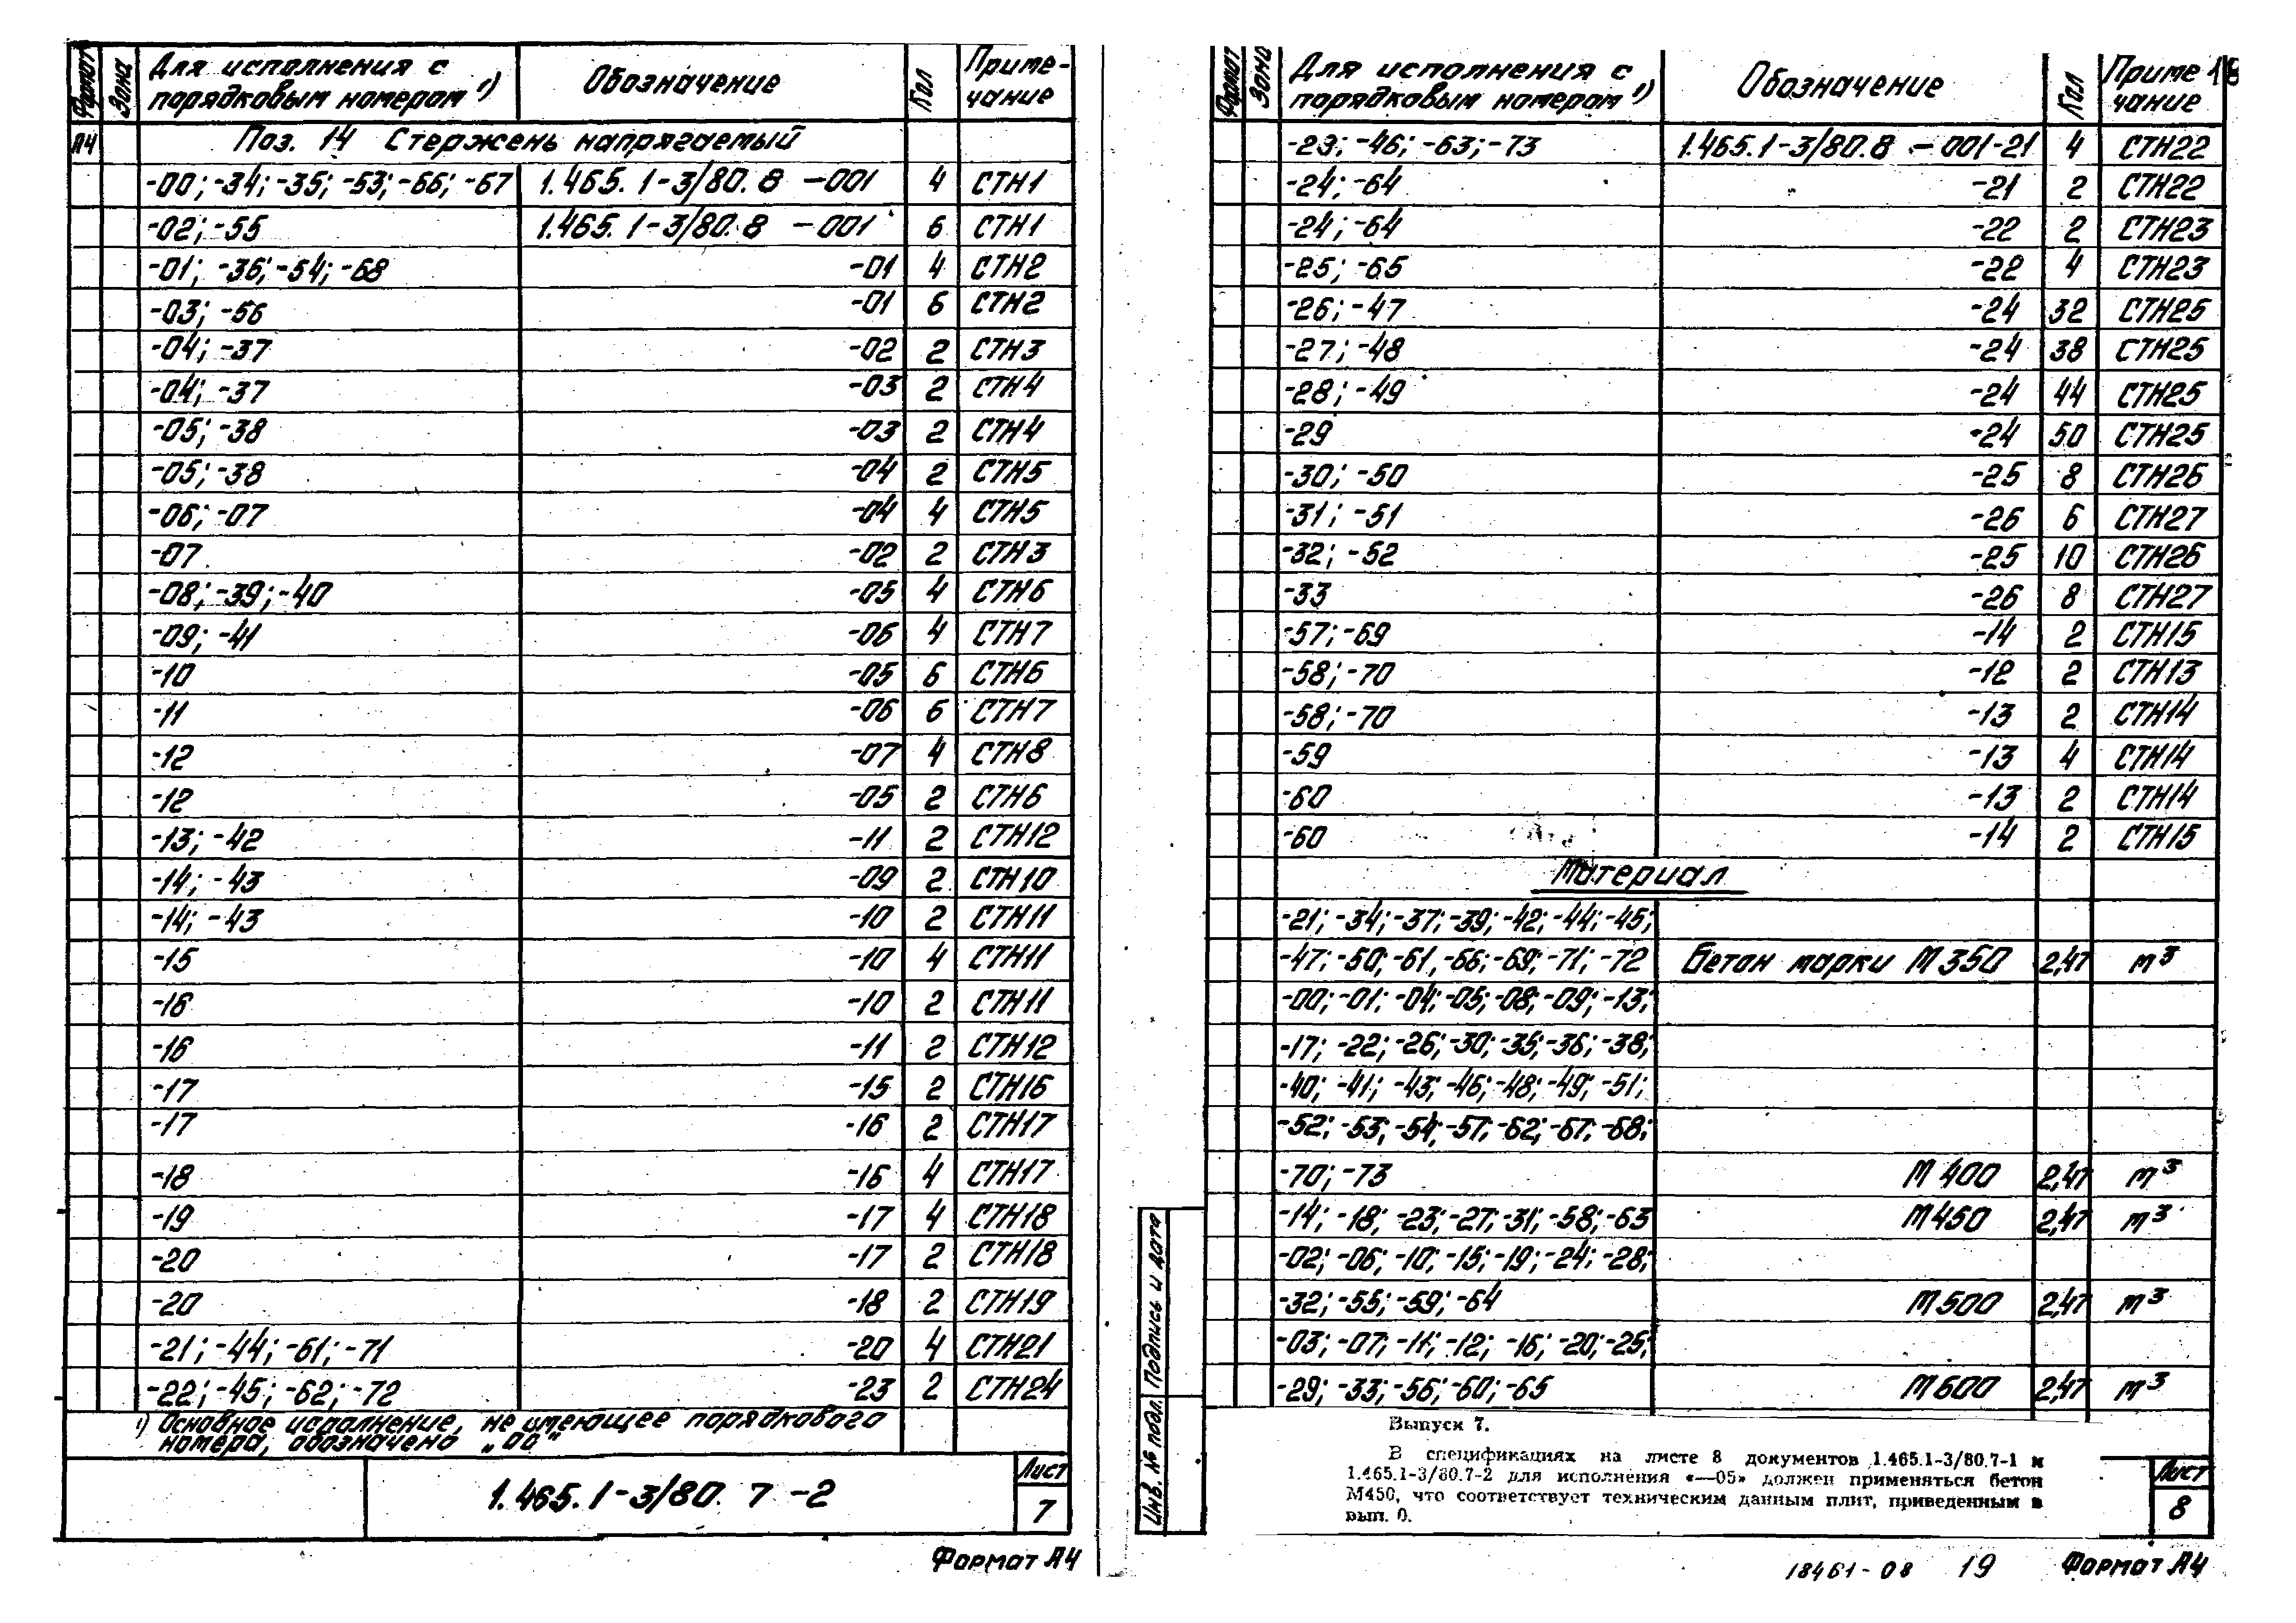 Формат Зона Для исполнения с порядковым номером ¹) Обозначение Кол Приме-чание
А4 Поз. 14 Стержень напрягаемый
-00; -34; -35; -53; -66; -67 1.465.1-3/80.8 -001 4 СТН1
-02; -55 1.465.1-3/80.8 -001 6 СТН1
-01; -36; -54; -68 -01 4 СТН2
-03; -56 -01 6 СТН2
-04; -37 -02 2 СТН3
-04; -37 -03 2 СТН4
-05; -38 -03 2 СТН4
-05; -38 -04 2 СТН5
-06; -07 -04 4 СТН5
-07 -02 2 СТН3
-08; -39; -40 -05 4 СТН6
-09; -41 -06 4 СТН7
-10 -05 6 СТН6
-11 -06 6 СТН7
-12 -07 4 СТН8
-12 -05 2 СТН6
-13; -42 -11 2 СТН12
-14; -43 -09 2 СТН10
-14; -43 -10 2 СТН11
-15 -10 4 СТН11
-16 -10 2 СТН11
-16 -11 2 СТН12
-17 -15 2 СТН16
-17 -16 2 СТН17
-18 -16 4 СТН17
-19 -17 4 СТН18
-20 -17 2 СТН18
-20 -18 2 СТН19
-21; -44; -61; -71 -20 4 СТН21
-22; -45; -62; -72 -23 2 СТН24
¹) Основное исполнение, не имеющее порядкового
номера, обозначено „00"
1.465.1-3/80. 7 -2
Лист
7
Формат А4
18
Формат Зона Для исполнения с порядковым номером ¹) Обозначение Кол Приме чание
-23; -46; -63; -73 1.465.1-3/80.8 -001-21 4 СТН22
-24; -64 -21 2 СТН22
-24; -64 -22 2 СТН23
-25; -65 -22 4 СТН23
-26; -47 -24 32 СТН25
-27; -48 -24 38 СТН25
-28; -49 -24 44 СТН25
-29 -24 50 СТН25
-30; -50 -25 8 СТН26
-31; -51 -26 6 СТН27
-32; -52 -25 10 СТН26
-33 -26 8 СТН27
-57; -69 -14 2 СТН15
-58; -70 -12 2 СТН13
-58; -70 -13 2 СТН14
-59 -13 4 СТН14
-60 -13 2 СТН14
-60 -14 2 СТН15
Материал
-21; -34; -37; -39; -42; -44; -45;
-47; -50; -61, -66; -69; -71; -72 Бетон марки М350 2,47 м³
-00; -01; -04; -05; -08; -09; -13;
-17; -22; -26; -30; -35; -36; -38;
-40; -41; -43; -46; -48; -49; -51;
-52; -53; -54; -57; -62; -67; -68;
-70; -73 М400 2,47 м³
-14; -18; -23; -27; -31; -58; -63 М450 2,47 м³
-02; -06; -10; -15; -19; -24; -28;
-32; -55; -59; -64 М500 2,47 м³
-03; -07; -11; -12; -16; -20; -25;
-29; -33; -56; -60; -65 М600 2,47 м³
Выпуск 7.
В спецификациях на листе 8 документов 1.465.1-3/80.7-1 и
1.465.1-3/80.7-2 для исполнения «—05» должен применяться бетон
М450, что соответствует техническим данным плит, приведенным в
вып. 0.
Инв. № подл. Подпись и дата
Лист
8
18461-08 19 Формат А4